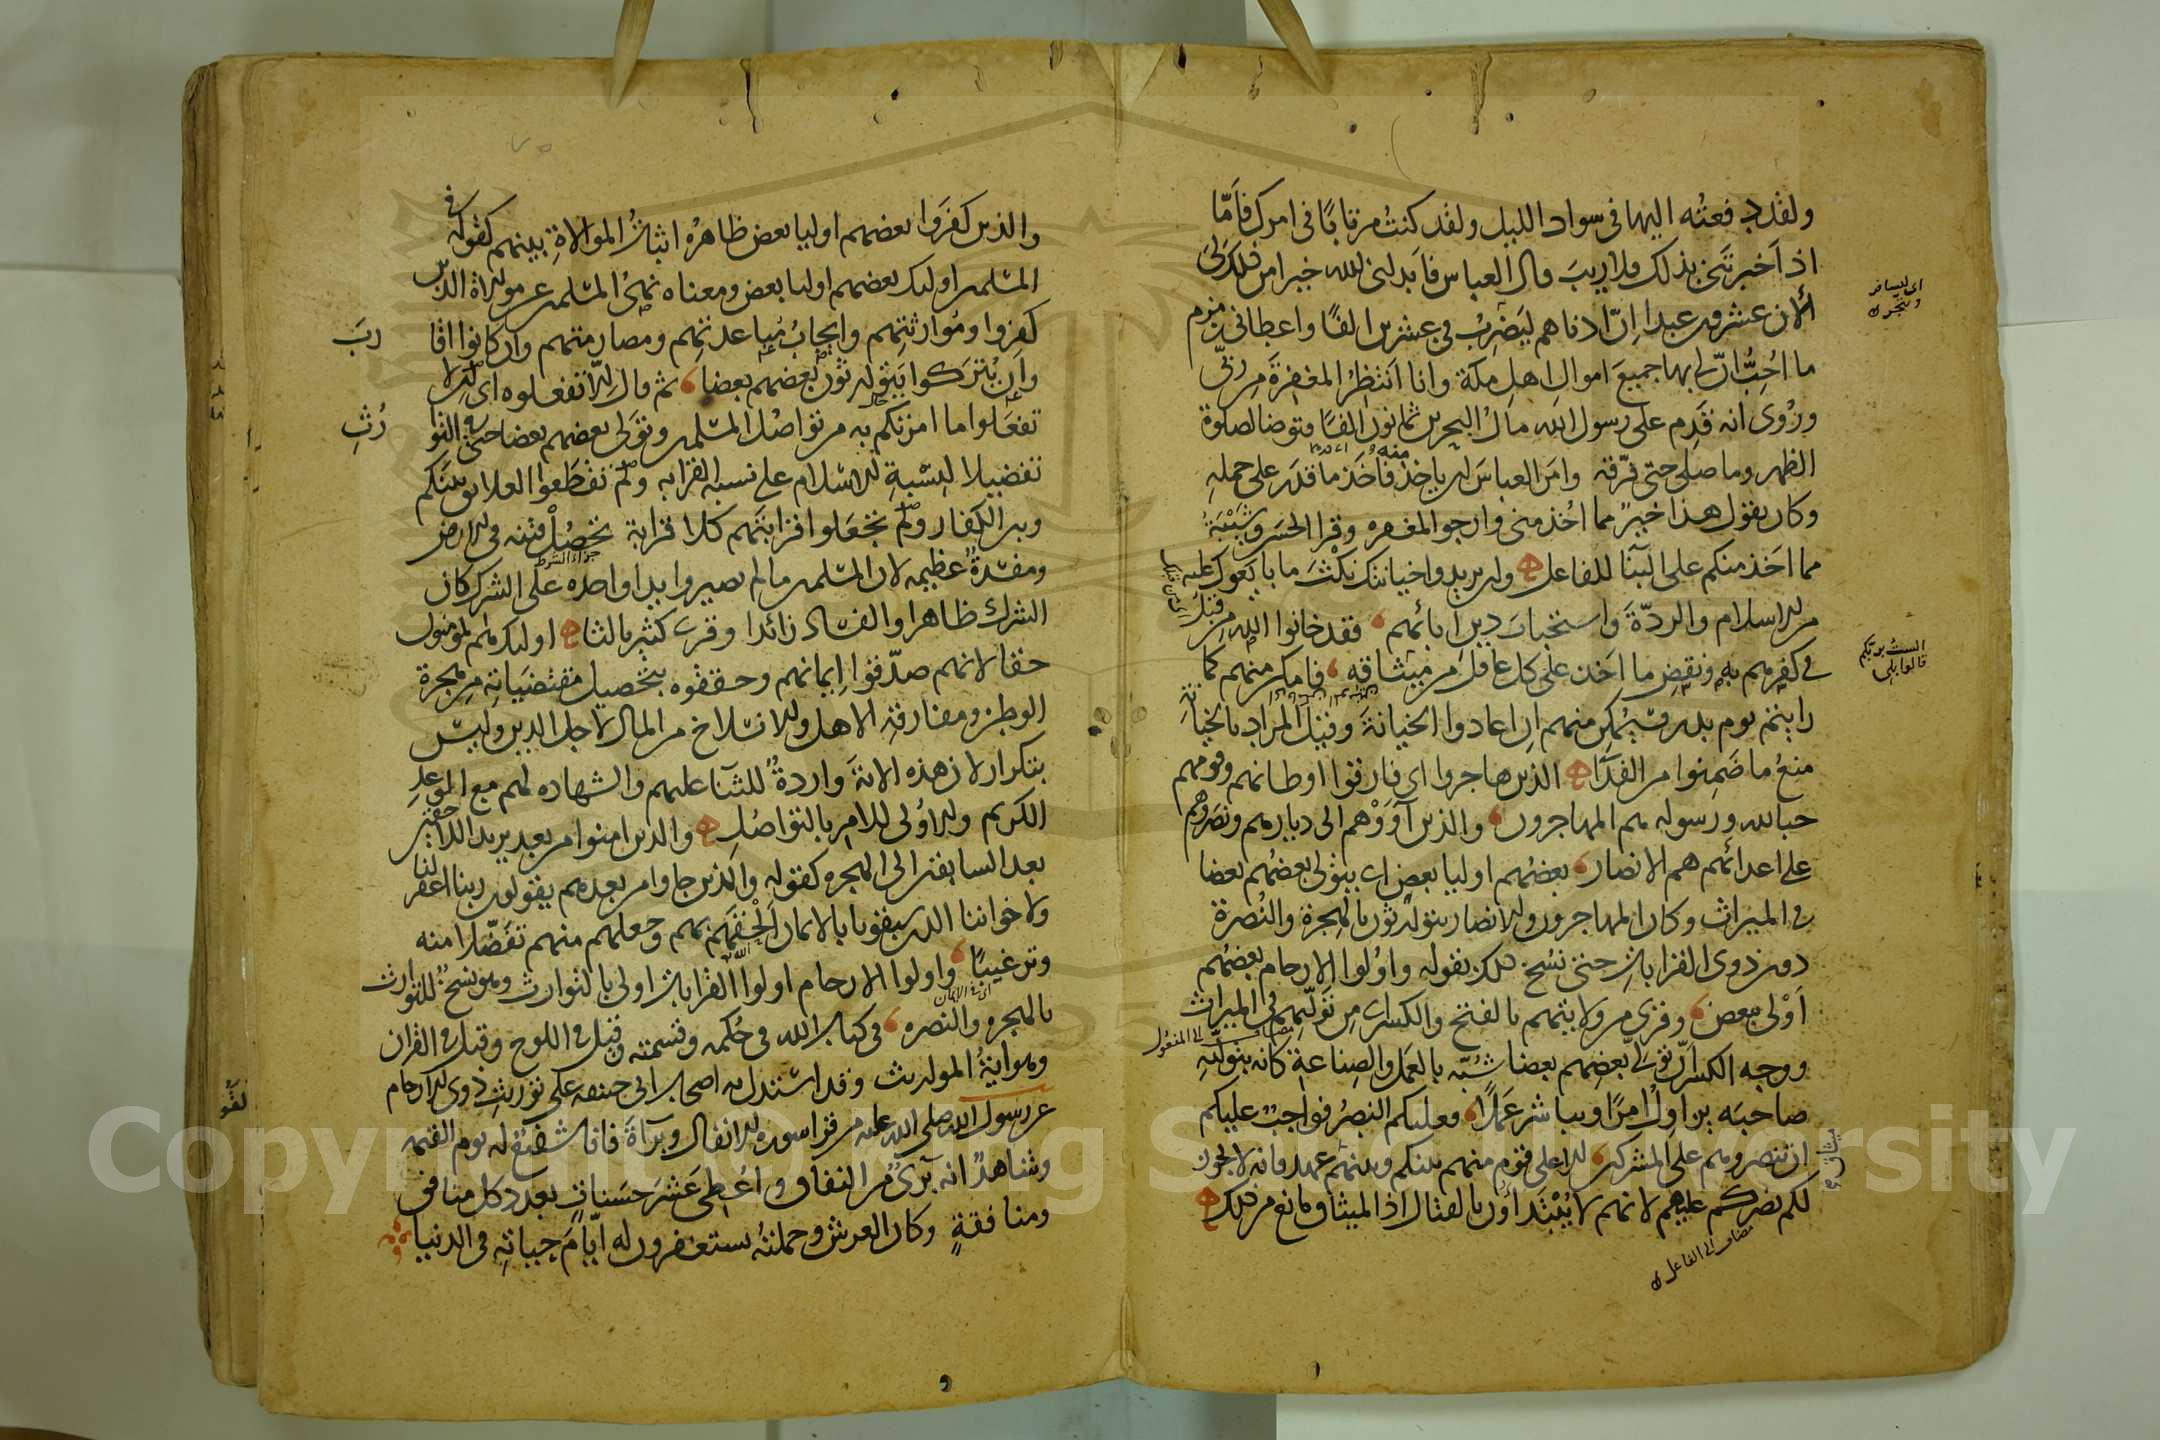 ولقد دفعته اليها في سواد الليل ولقد كنت مرتابا في امرك فاما
اذ اخبرتني بذلك فلا ريب قال العباس فابدلني الله خيرا من ذلك لي
الان عشرون عبدا ان ادناهم ليضرب في عشرين الفا واعطاني زمزم
ما احب ان لي بها جميع اموال اهل مكة وانا انتظر المغفرة من ربي
وروى انه قدم على رسول الله مال البحرين ثمانون الفا فتوضا لصلوة
الظهر وما صلى حتى فرقه وامر العباس ان ياخذ منه فاخذ ما قدر على حمله
وكان يقول هذا خير مما اخذ مني وارجو المغفره وقرا الحسن وشيبة
مما اخذ منكم على البنا للفاعل وان يريدوا خيانتك نكث ما بايعوك عليه
من الاسلام والردة واستحباب دين ابائهم فقد خانوا الله من قبل
في كفرهم به ونقض ما اخذ على كل عاقل من ميثاقه فامكن منهم كما
رايتم يوم بدر فسيمكن منهم ان اعادوا الخيانة وقيل المراد بالخيانة
منع ما ضمنوا من الفدا الذين هاجروا اي فارقوا اوطانهم وقومهم
حبا لله ورسوله هم المهاجرون والذين آووهم الى ديارهم ونصروهم
على اعدائهم هم الانصار بعضهم اوليا بعض اي يتولى بعضهم بعضا
في الميراث وكان المهاجرون والانصار يتوارثون بالهجرة والنصرة
دون ذوي القرابات حتى نسخ ذلك بقوله واولوا الارحام بعضهم
اولى ببعض وقرى من ولايتهم بالفتح والكسر اي من توليهم في الميراث
ووجه الكسر ان تولي بعضهم بعضا شبه بالعمل والصناعة كانه بتوليه
صاحبه يزاول امرا ويباشر عملا فعليكم النصر فواجب عليكم
ان تنصروهم على المشركين الا على قوم منهم بينكم وبينهم عهد فانه لا يجوز
لكم نصركم عليهم لانهم لا يبتداون بالقتال اذ الميثاق مانع من ذلك
اي ليسافر
ويتجر
الست بربكم
قالوا بلى
مضاف الى المفعول
مضاف الى الفاعل
والذين كفروا بعضهم اوليا بعض ظاهره اثبات الموالاة بينهم كقوله في
المسلمين اولئك بعضهم اوليا بعض ومعناه نهى المسلمين عن موالاة الذين
كفروا وموارثتهم وايجاب مباعدتهم ومصارمتهم وان كانوا اقارب
وان يتركوا يتوارثون بعضهم بعضا ثم قال الا تفعلوه اي الا
تفعلوا ما امرتكم به من تواصل المسلمين وتولى بعضهم بعضا حتى في التوارث
تفضيلا لنسبة الاسلام على نسبة القرابه ولم تقطعوا العلايق بينكم
وبين الكفار ولم تجعلوا قرابتهم كلا قرابة تحصل فتنه في الارض
جزاء الشرط
ومفسدة عظيمه لان المسلمين ما لم يصيروا يدا واحده على الشرك كان
الشرك ظاهرا والفساد زائدا وقرى كثير بالثا اولئك هم المومنون
حقا لانهم صدقوا ايمانهم وحققوه بتحصيل مقتضياته من هجرة
الوطن ومفارقة الاهل والانسلاخ من المال لاجل الدين وليس
بتكرار لان هذه الاية واردة للثنا عليهم والشهاده لهم مع الموعد
الكريم والاولى للامر بالتواصل والذين امنوا من بعد يريد اللاحقين
بعد السابقين الى الهجره كقوله والذين جاوا من بعدهم يقولون ربنا اغفر لنا
ولاخواننا الذين سبقونا بالايمان الحقهم بهم وجعلهم منهم تفضلا منه
وترغيبا واولوا الارحام اولوا القرابات اولى بالتوارث وهو نسخ للتوارث
بالهجره والنصره في كتاب الله في حكمه وقسمته وقيل في اللوح وقيل في القران
وهو اية المواريث وقد استدل به اصحاب ابي حنيفه على توريث ذوي الارحام
عن رسول الله صلى الله عليه من قرا سوره الانفال وبراة فانا شفيع له يوم القيمه
وشاهد انه برئ من النفاق واعطى عشر حسنات بعدد كل منافق
ومنافقة وكان العرش وحملته يستغفرون له ايام حياته في الدنيا
Copyright © King Saud University